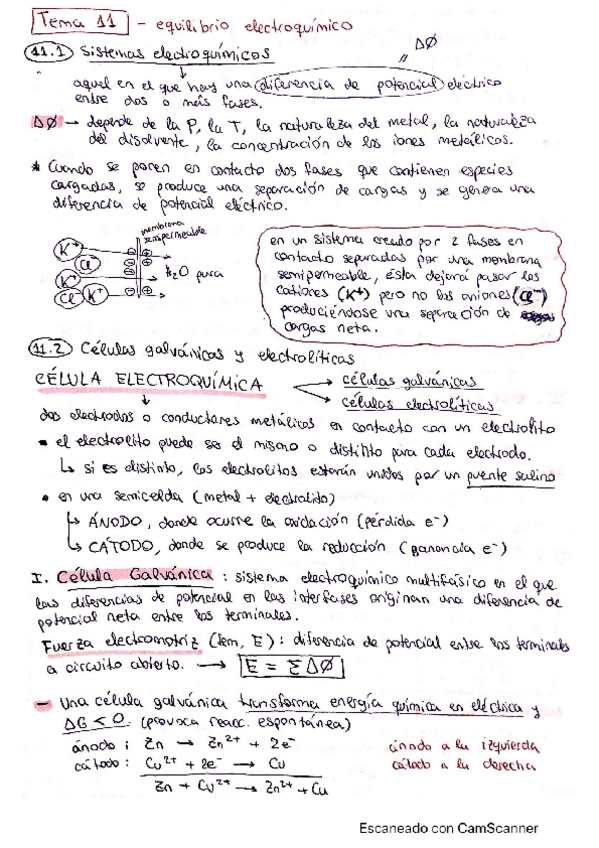 Tema 11 - equilibrio electroquímico
11.1 Sistemas electroquímicos
ΔØ
aquel en el que hay una diferencia de potencial eléctrico
entre dos o más fases.
ΔØ → depende de la P, la T, la naturaleza del metal, la naturaleza
del disolvente, la concentración de los iones metálicos.
* Cuando se ponen en contacto dos fases que contienen especies
cargadas, se produce una separación de cargas y se genera una
diferencia de potencial eléctrico.
membrana
semipermeable
K+
Cl-
K+
Cl- K+
H2O pura
en un sistema creado por 2 fases en
contacto separadas por una membrana
semipermeable, ésta dejará pasar los
cationes (K+) pero no los aniones (Cl-)
produciéndose una separación de
cargas neta.
11.2 Células galvánicas y electrolíticas
CÉLULA ELECTROQUÍMICA
células galvánicas
células electrolíticas
dos electrodos o conductores metálicos en contacto con un electrolito
• el electrolito puede ser el mismo o distinto para cada electrodo.
↳ si es distinto, los electrolitos estarán unidos por un puente salino
• en una semicelda (metal + electrolito)
↳ ÁNODO, donde ocurre la oxidación (pérdida e-)
↳ CÁTODO, donde se produce la reducción (ganancia e-)
I. Célula Galvánica : sistema electroquímico multifásico en el que
las diferencias de potencial en las interfases originan una diferencia de
potencial neta entre los terminales.
Fuerza electromotriz (fem, E) : diferencia de potencial entre los terminales
a circuito abierto. → E = Σ ΔØ
- Una célula galvánica transforma energía química en eléctrica y
ΔG < 0. (provoca reacc. espontánea)
ánodo : Zn → Zn2+ + 2e-
ánodo a la izquierda
cátodo : Cu2+ + 2e- → Cu
cátodo a la derecha
Zn + Cu2+ → Zn2+ + Cu
Escaneado con CamScanner